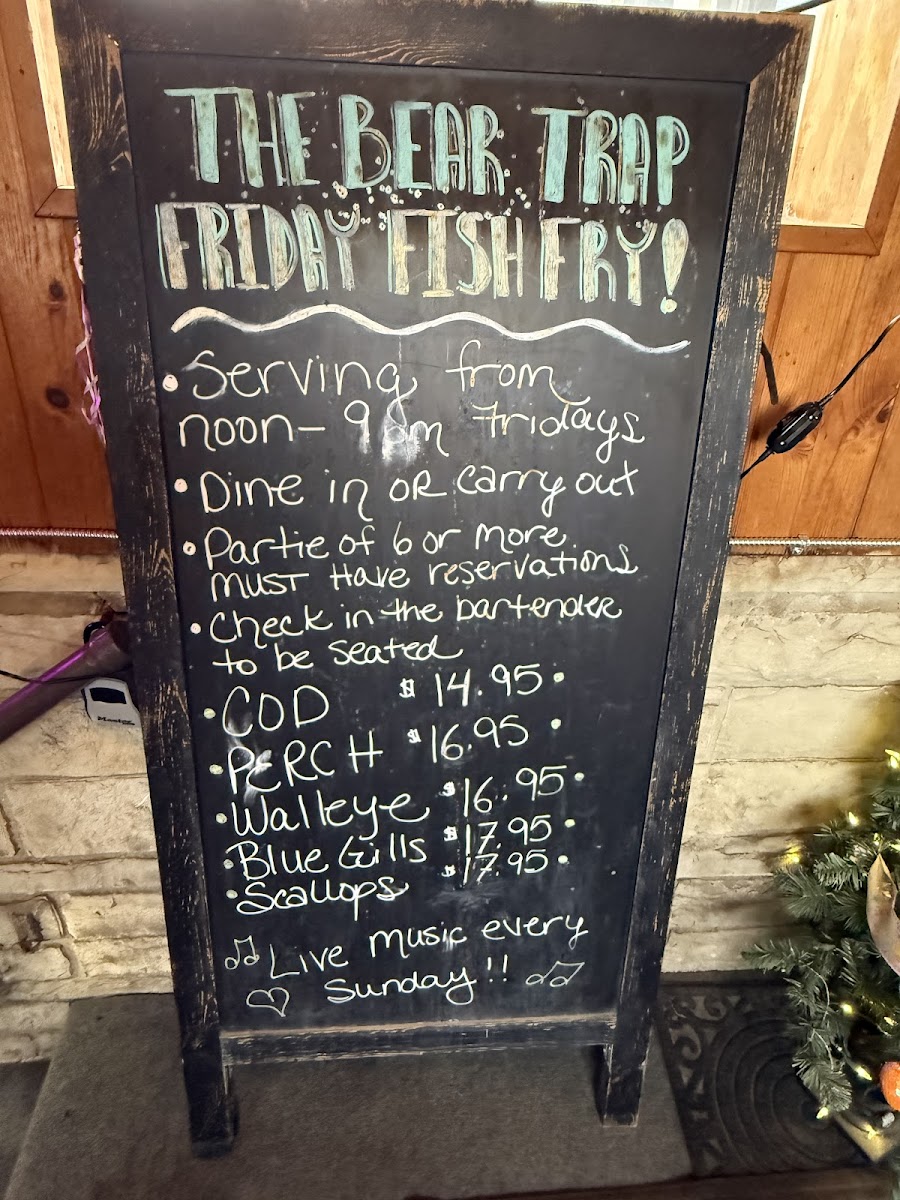 THE BEAR TRAP
FRIDAY FISH FRY!
• Serving from
noon - 9pm Fridays
• Dine in OR carry out
• Partie of 6 or more
MUST HAVE reservations
• Check in the bartender
to be seated
• COD $14.95 •
• PERCH $16.95 •
• Walleye $16.95 •
• Blue Gills $17.95 •
• Scallops $17.95 •
Live Music every
Sunday!!
Master